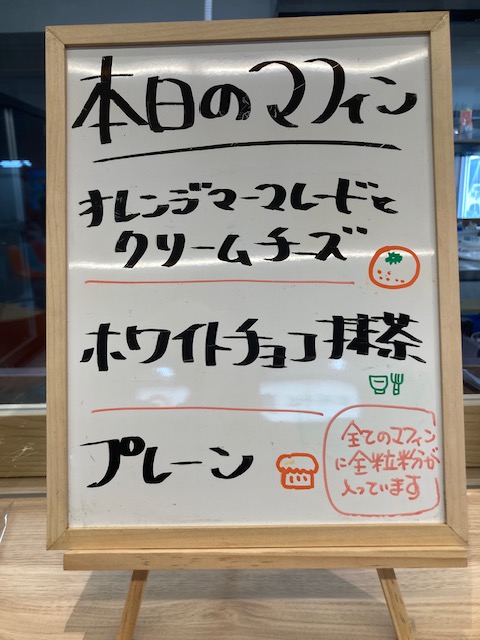 本日のマフィン
オレンジマーマレードと
クリームチーズ
ホワイトチョコ抹茶
プレーン
全てのマフィン
に全粒粉が
入っています